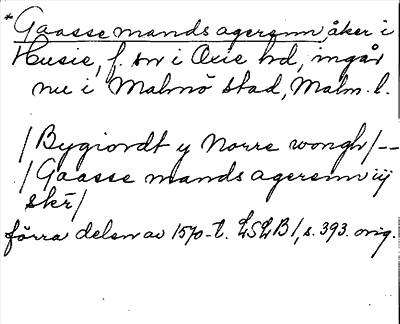 * Gaasse mands agerenn, åker i
Husie, f. sn i Oxie hd, ingår
nu i Malmö stad, Malm. l.
/Bygiordt y Norre wongh/--
/Gaasse mands agerenn iij
skr̄/
förra delen av 1570-t. LSLB1, s. 393. orig.